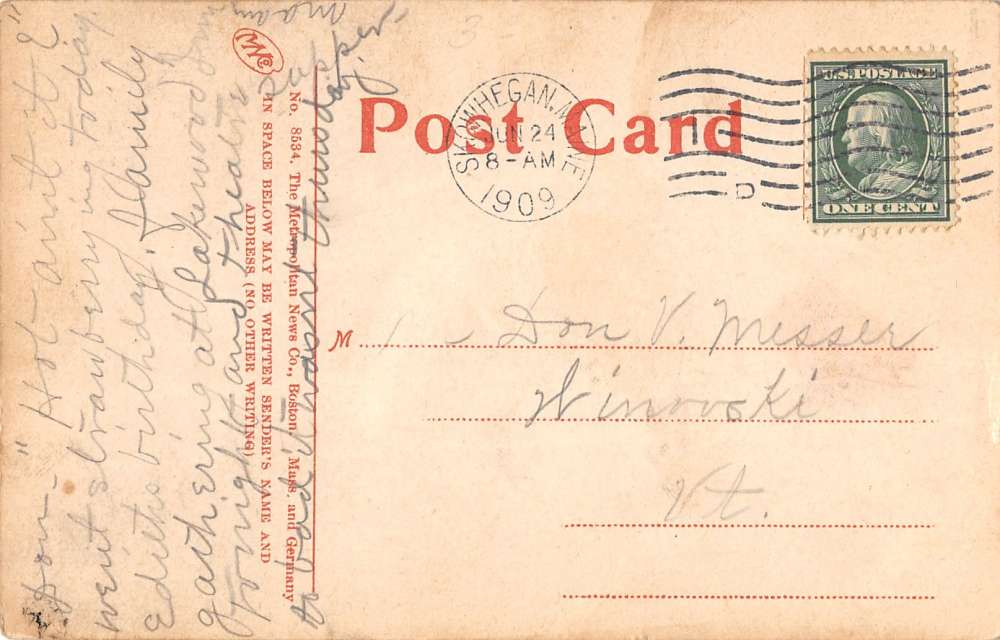 Post Card
SKOWHEGAN, MAINE
JUN 24
8-AM
1909
U.S. POSTAGE
ONE CENT
D
M
Don V. Messer
Winooski
Vt.
No. 8534, The Metropolitan News Co., Boston, Mass. and Germany
IN SPACE BELOW MAY BE WRITTEN SENDER'S NAME AND
ADDRESS (NO OTHER WRITING)
"Don-" "Hot-aint it E"
went strawberrying today.
Ediths birthday. Family
gathering at Lakewood
tonight and theatre
to bad it wasnt thursday